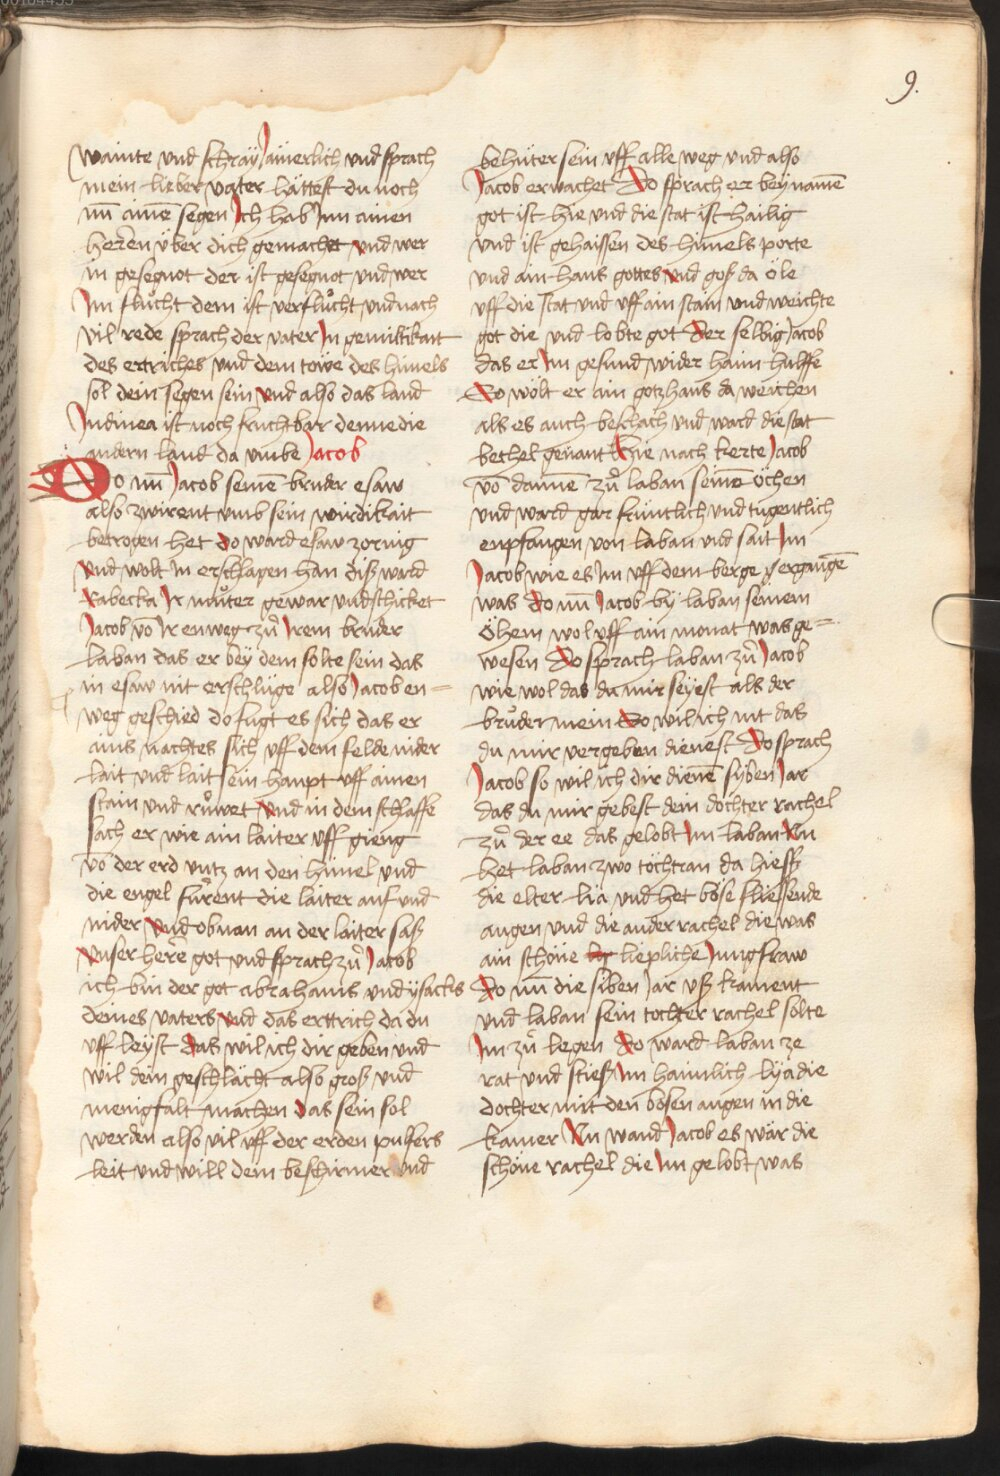 9.
wainte vnd schray Jamerlich vnd sprach
mein lieber vater hättest du noch
nū ainē segen Ich hab Im ainen
herren über dich gemachet vnd wer
in gesegnot der ist gesegnot vnd wer
Im flucht dem ist verflucht vnd nach
vil rede sprach der vater In gemiltikait
des ertriches vnd dem towe des himels
sol dein segen sein vnd also das land
Indinea ist noch fruchtbar denne die
andern land da vmbe Jacob
Do nū Jacob seinē bruder esaw
also zwirent vmb sein wirdikait
betrogen het do ward esaw zornig
vnd wolt in erschlagen han diß ward
Rabecka Ir muter gewar vnd schicket
Jacob vō Ir enweg zu Irem bruder
laban das er bey dem solte sein das
in esaw nit erschlüge also Jacob en=
weg geschied do fugt es sich das er
ains nachtes sich vff dem felde nider
lait vnd lait sein haupt vff ainen
stain vnd ruwet vnd in dem schlaffe
sach er wie ain laiter vff gieng
vō der erd vntz an den himel vnd
die engel furent die laiter auf vnd
nider vnd obnan an der laiter saß
vnser herre got vnd sprach zu Jacob
ich bin der got abrahams vnd ysacks
deines vaters vnd das erttrich da du
vff leyst das wil ich dir geben vnd
wil dein geschlächt also groß vnd
menigfalt machen das sein sol
werden also vil vff der erden pulfers
leit vnd will dein beschirmer vnd
behüter sein vff alle weg vnd also
Jacob erwachet Do sprach er bey namē
got ist hie vnd die stat ist hailig
vnd ist gehaissen des himels porte
vnd ain haus gottes vnd goß da öle
vff die stat vnd vff ain stain vnd weichte
got die vnd lobte got Der selbig Jacob
das er Im gesund wider haim hälffe
So wölt er ain gotzhaus da weichen
als es auch beschach vnd ward die stat
bethel genant Hie nach kerte Jacob
vō dannē zu laban seinē öchen
vnd ward gar früntlich vnd tugentlich
enpfangen von laban vnd sait Im
Jacob wie es Im vff dem berge ergangē
was Do nū Jacob by laban seinem
öhem wol vff ain monat was ge=
wesen Do sprach laban zu Jacob
wie wol das du mir seyest als der
bruder mein So wil ich nit das
du mir vergeben dienest Do sprach
Jacob so wil ich dir dienē siben Jar
das du mir gebest dein dochter rachel
zu der ee das gelobt Im laban Nu
het laban zwo töchtran da hieß
die elter lia vnd het böse fliessende
augen vnd die ander rachel die was
ain schöne liepliche Jungfraw
Do nū die siben Jar vß kament
vnd laban sein tochter rachel solte
Im zu legen Do ward laban ze
rat vnd stieß Im haimlich lya die
dochter mit den bösen augen in die
kamer Nu wand Jacob es wär die
schöne rachel die Im gelobt was